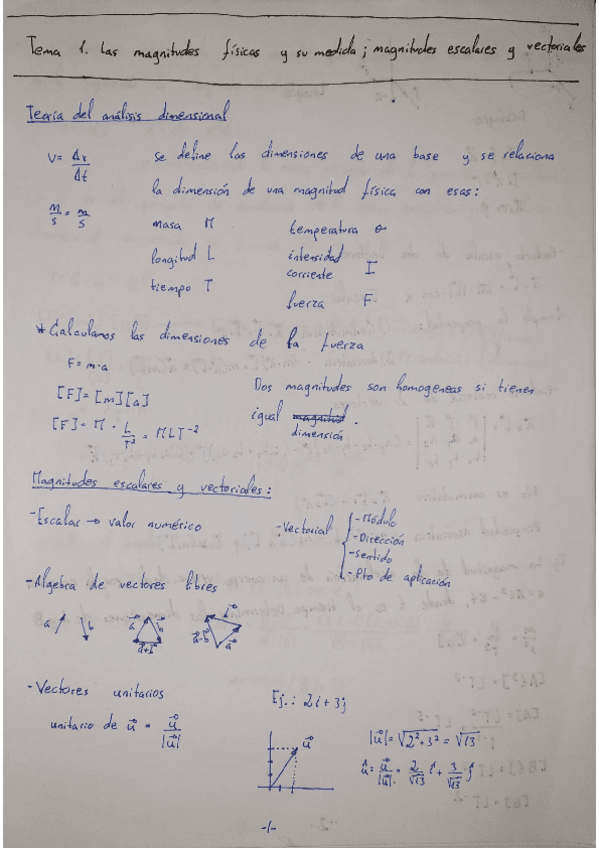 Tema 1. Las magnitudes físicas y su medida; magnitudes escalares y vectoriales
Teoría del análisis dimensional
v = Δr/Δt
Se define las dimensiones de una base y se relaciona
la dimensión de una magnitud física con esas:
m/s = m/s
masa M temperatura θ
longitud L intensidad corriente I
tiempo T
fuerza F
* Calculamos las dimensiones de la fuerza
F = m·a
[F] = [m][a]
[F] = M · L/T² = MLT⁻²
Dos magnitudes son homogéneas si tienen
igual magnitud.
dimensión
Magnitudes escalares y vectoriales:
- Escalar → valor numérico
- Vectorial
- Módulo
- Dirección
- Sentido
- Pto de aplicación
- Algebra de vectores libres
a b a⃗ b⃗ a⃗+b⃗ a⃗-b⃗ a⃗
- Vectores unitarios
unitario de u⃗ = u⃗/|u⃗|
Ej.: 2i + 3j
u⃗
|u⃗| = √2²+3² = √13
û = u⃗/|u⃗| = 2/√13 î + 3/√13 ĵ
-1-